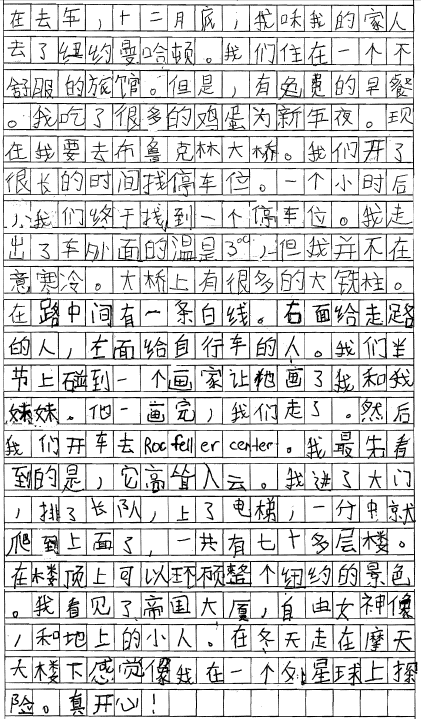 在去年，十二月底，我味我的家人
去了纽约曼哈顿。我们住在一个不
舒服的旅馆。但是，有免费的早餐
。我吃了很多的鸡蛋为新年夜。现
在我要去布鲁克林大桥。我们开了
很长的时间找停车位。一个小时后
，我们终于找到一个停车位。我走
出了车外面的温是3℃，但我并不在
意寒冷。大桥上有很多的大铁柱。
在路中间有一条白线。右面给走路
的人，左面给自行车的人。我们半
节上碰到一个画家让他画了我和我
妹妹。他一画完，我们走了。然后
我们开车去Rocfeller center。我最先看
到的是，它高耸入云。我进了大门
，排了长队，上了电梯，一分中就
爬到上面了，一共有七十多层楼。
在楼顶上可以环顾整个纽约的景色
。我看见了帝国大厦，自由女神像
，和地上的小人。在冬天走在摩天
大楼下感觉像我在一个外星球上探
险。真开心！